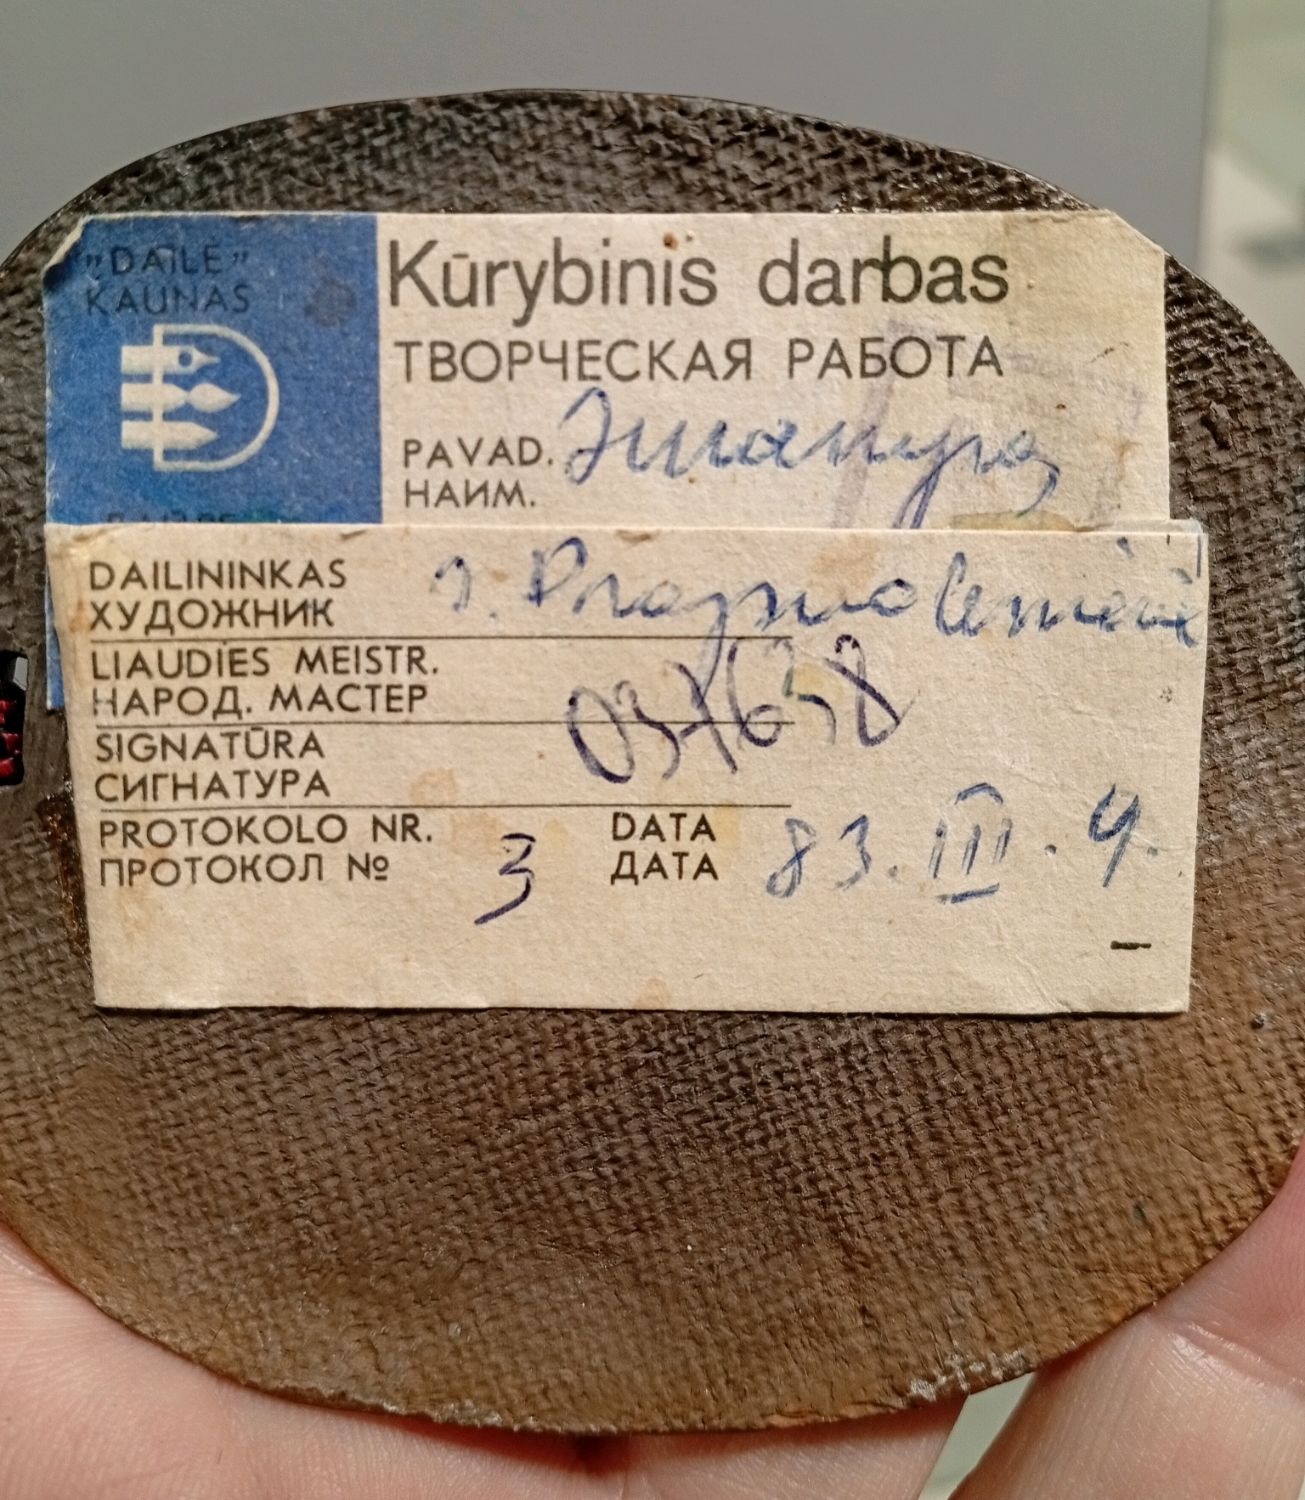 „DAILĖ”
KAUNAS
Kūrybinis darbas
ТВОРЧЕСКАЯ РАБОТА
PAVAD.
НАИМ.
DAILININKAS
ХУДОЖНИК
LIAUDIES MEISTR.
НАРОД. МАСТЕР
SIGNATŪRA
СИГНАТУРА
PROTOKOLO NR. 3 DATA 83. III. 4.
ПРОТОКОЛ № ДАТА